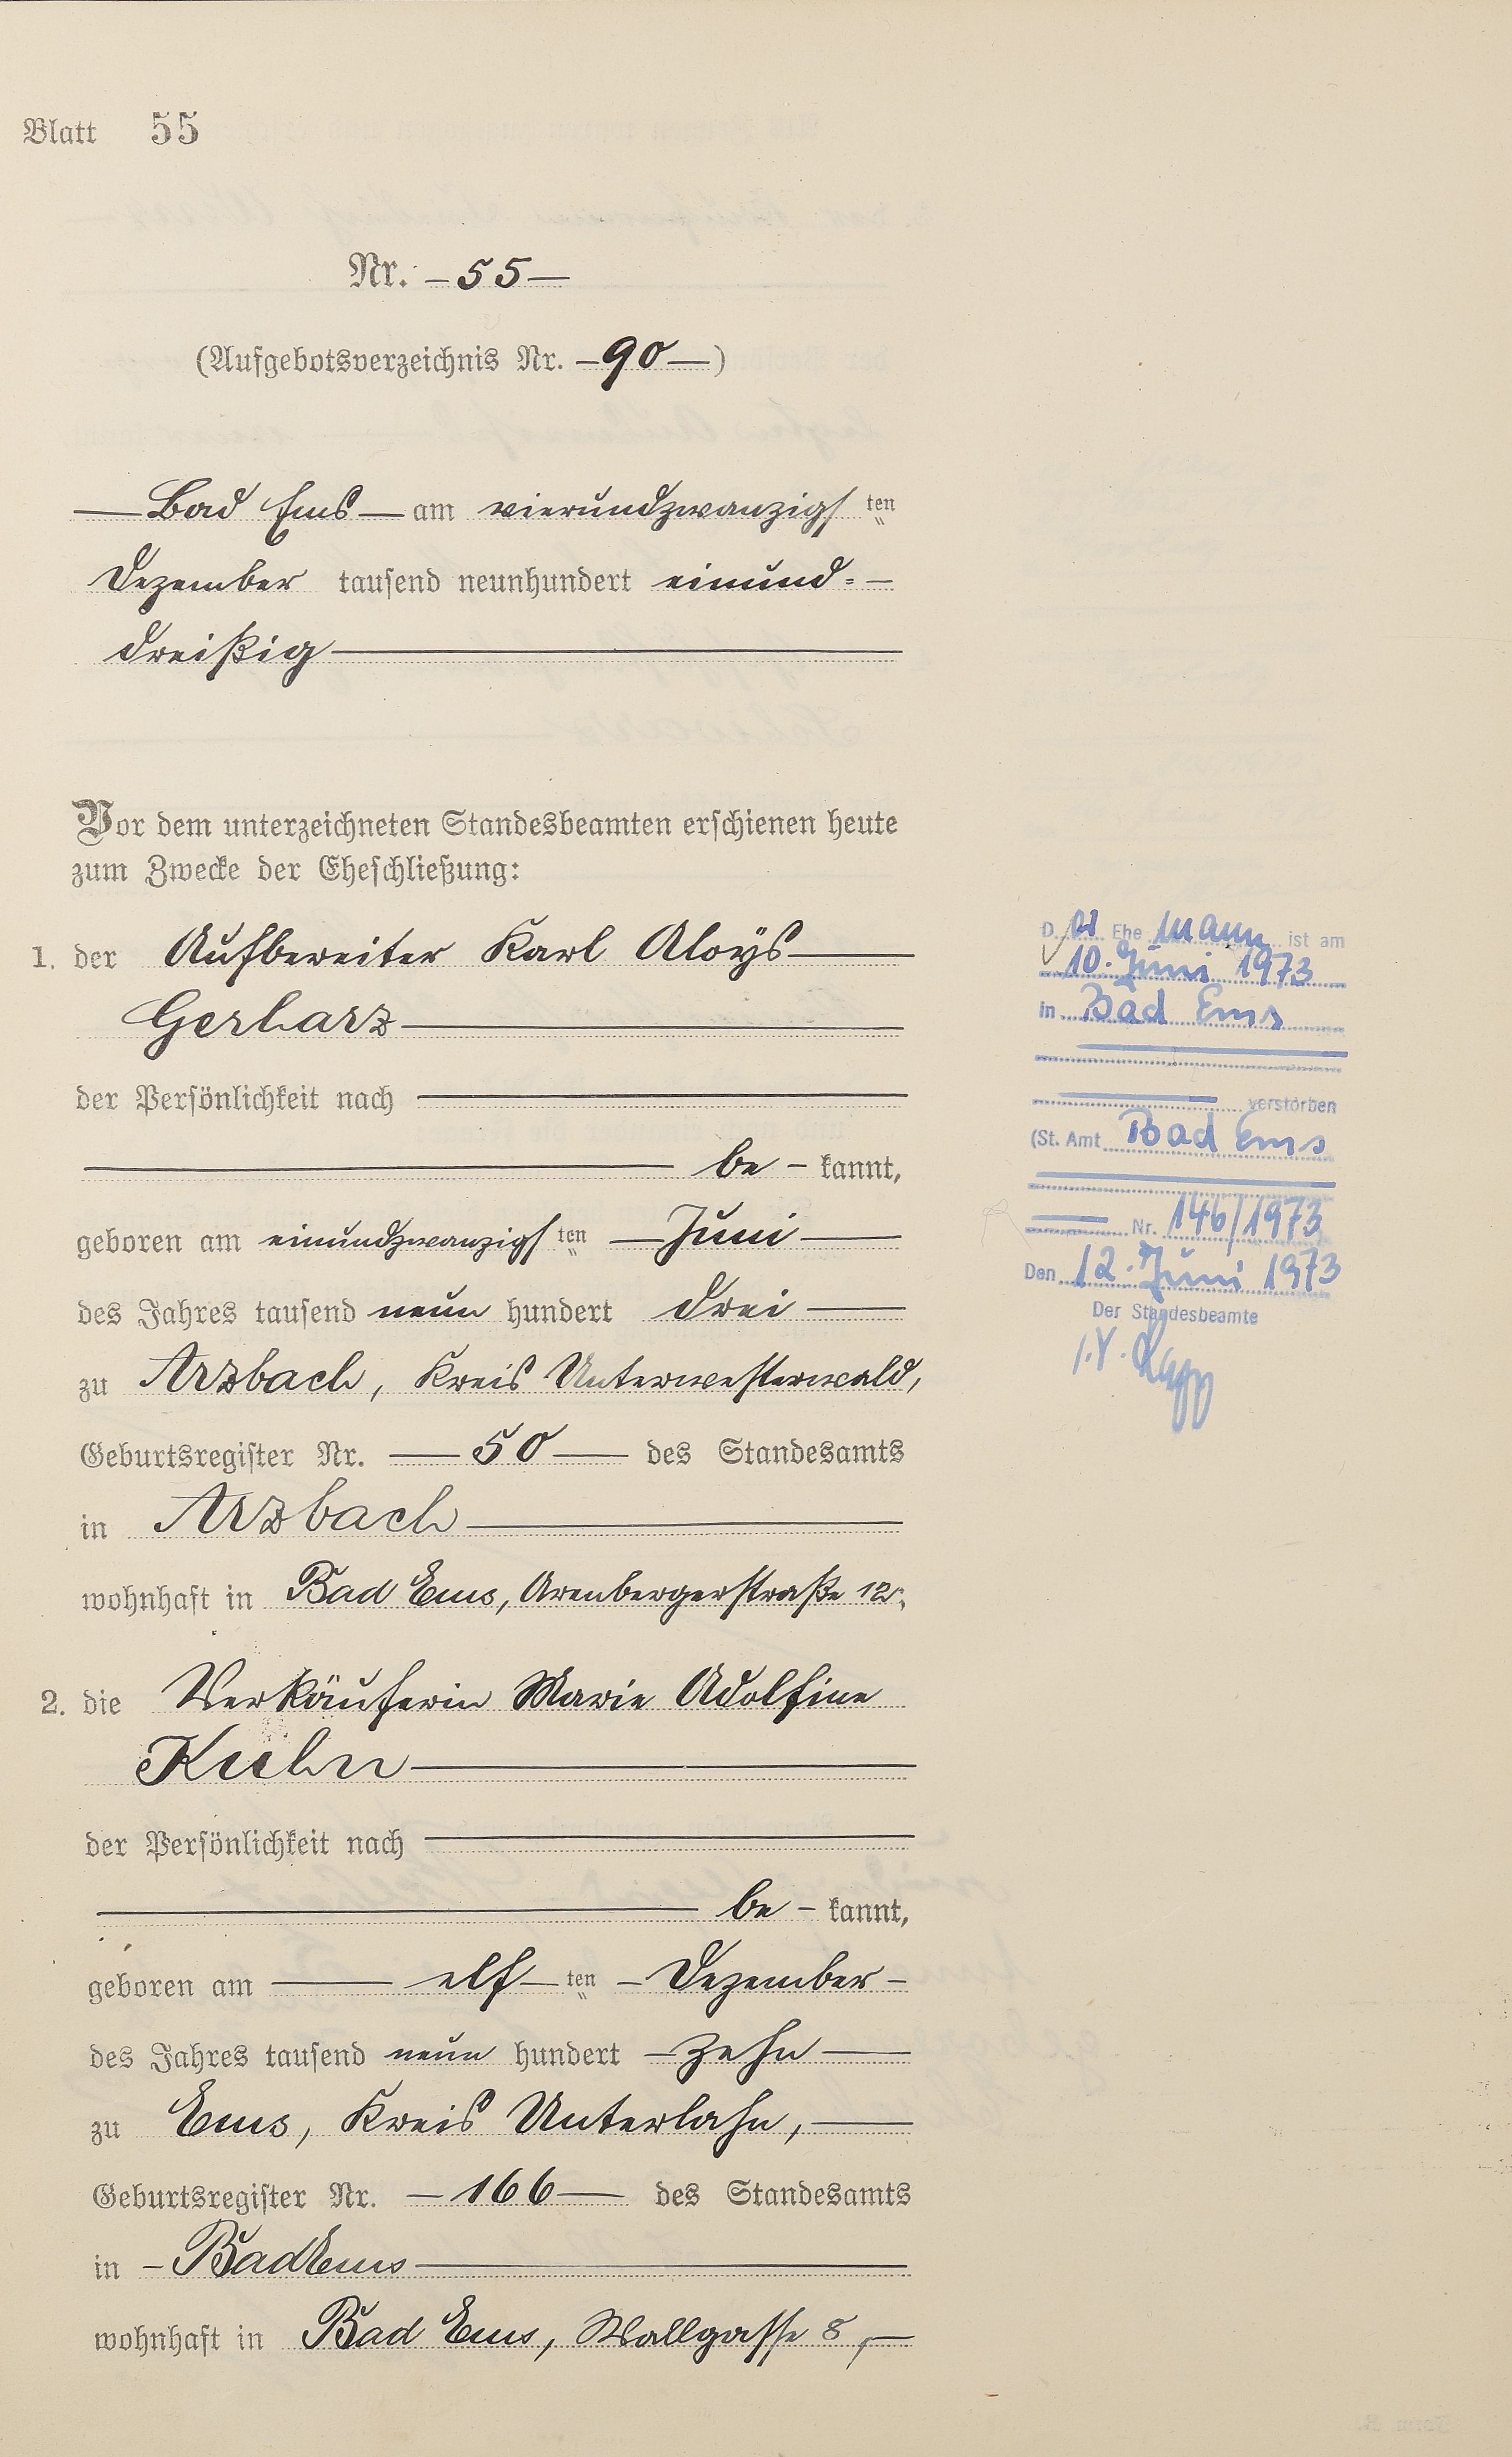 Blatt 55
Nr. — 55 —
(Aufgebotsverzeichnis Nr. — 90 —)
— Bad Ems — am vierundzwanzigsten
Dezember tausend neunhundert einund= —
dreißig —
Vor dem unterzeichneten Standesbeamten erschienen heute
zum Zwecke der Eheschließung:
1. der Aufbereiter Karl Aloÿs —
Gerharz —
der Persönlichkeit nach —
— be - kannt,
geboren am einundzwanzigsten — Juni —
des Jahres tausend neun hundert drei —
zu Arzbach, Kreis Unterwesterwald,
Geburtsregister Nr. — 50 — des Standesamts
in Arzbach —
wohnhaft in Bad Ems, Arenbergerstraße 12,
2. die Verkäuferin Marie Adolfine
Kuhn —
der Persönlichkeit nach —
— be - kannt,
geboren am — elf — ten — Dezember —
des Jahres tausend neun hundert — zehn —
zu Ems, Kreis Unterlahn, —
Geburtsregister Nr. — 166 — des Standesamts
in — Bad Ems —
wohnhaft in Bad Ems, Wallgasse 8, —
D er Ehe mann ist am
10. Juni 1973
in Bad Ems
verstorben
(St. Amt Bad Ems
Nr. 146/1973
Den 12. Juni 1973
Der Standesbeamte
I.V.